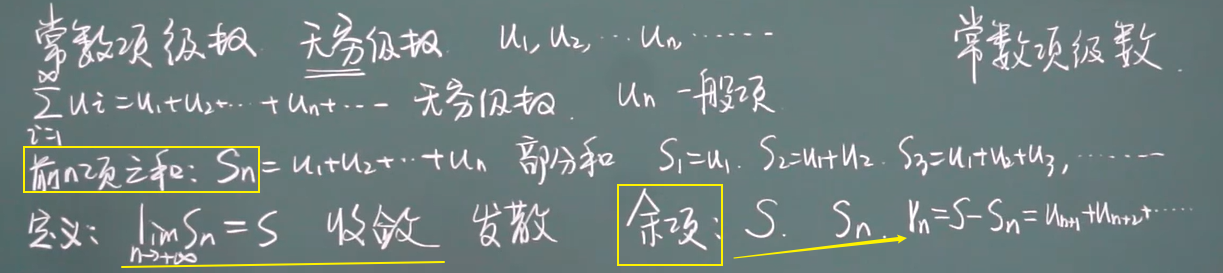 常数项级数 无穷级数 u₁, u₂, ⋯ uₙ ⋯⋯ 常数项级数.
∑_{i=1}^{∞} uᵢ = u₁+u₂+⋯+uₙ+⋯ 无穷级数. uₙ 一般项
前n项之和: Sₙ = u₁+u₂+⋯+uₙ 部分和 S₁=u₁. S₂=u₁+u₂. S₃=u₁+u₂+u₃, ⋯⋯
定义: lim_{n→+∞} Sₙ = S 收敛 发散 余项: S. Sₙ. rₙ=S-Sₙ=uₙ₊₁+uₙ₊₂+⋯⋯